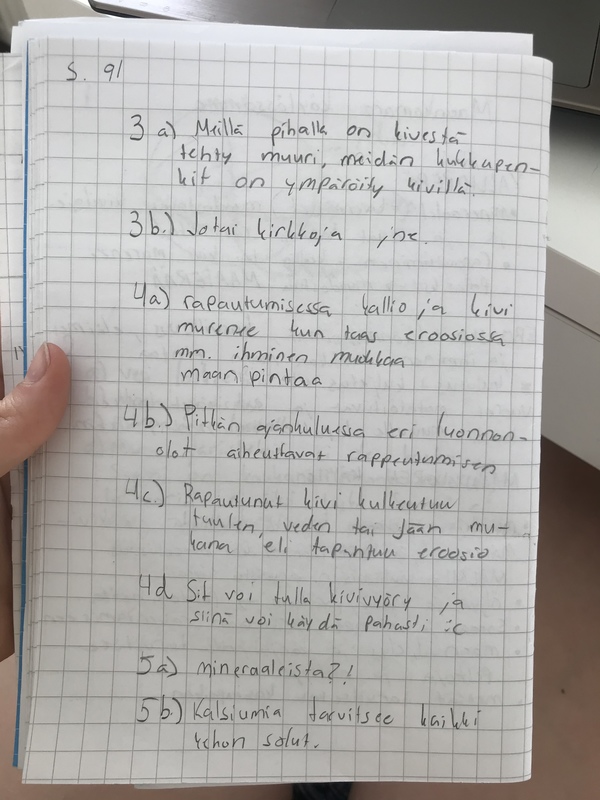 s. 91
3 a) Meillä pihalla on kivestä
tehty muuri, meidän kukkapen-
kit on ympäröity kivillä.
3b.) Jotai kirkkoja jne.
4a) rapautumisessa kallio ja kivi
murenee kun taas eroosiossa
mm. ihminen muokkaa
maan pintaa
4b.) Pitkän ajankuluessa eri luonnon-
olot aiheuttavat rappeutumisen
4c.) Rapautunut kivi kulkeutuu
tuulen, veden tai Jään mu-
kana eli tapahtuu eroosio
4d Sit voi tulla kivivyöry ja
siinä voi käydä pahasti :c
5a) mineraaleista?!
5b.) Kalsiumia tarvitsee kaikki
kehon solut.